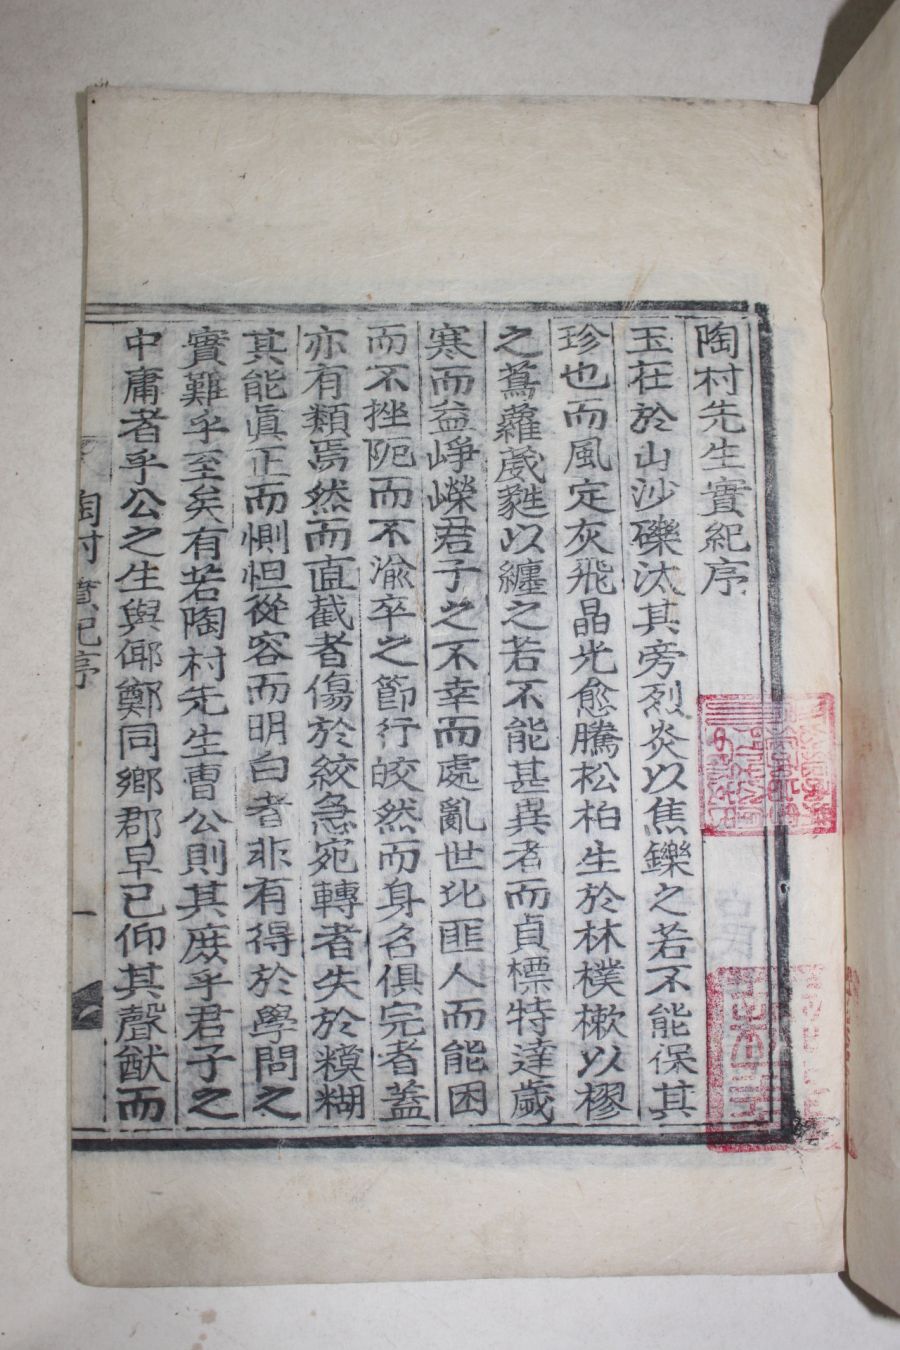 陶村先生實紀序
玉在於山沙礫汰其旁烈炎以焦鑠之若不能保其
珍也而風定灰飛晶光愈騰松柏生於林樸樕以樛
之蔦蘿葳蕤以纏之若不能甚異者而貞標特達歲
寒而益崢嶸君子之不幸而處亂世比匪人而能困
而不挫阨而不渝卒之節行皎然而身名俱完者蓋
亦有類焉然而直截者傷於絞急宛轉者失於糢糊
其能眞正而惻怛從容而明白者非有得於學問之
實難乎至矣有若陶村先生曺公則其庶乎君子之
中庸者乎公之生與鄭同鄕郡早已仰其聲猷而
陶村實紀序
一